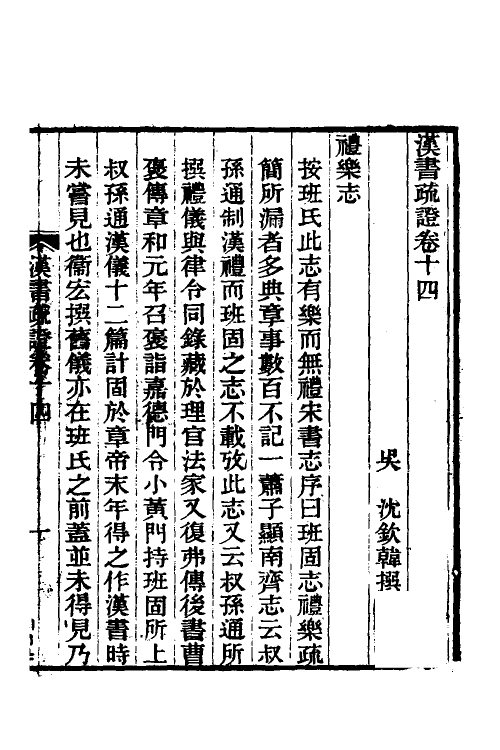 漢書疏證卷十四
吳　沈欽韓撰
禮樂志
按班氏此志有樂而無禮宋書志序曰班固志禮樂疏
簡所漏者多典章事數百不記一蕭子顯南齊志云叔
孫通制漢禮而班固之志不載攷此志又云叔孫通所
撰禮儀與律令同錄藏於理官法家又復弗傳後書曹
褒傳章和元年召褒詣嘉德門令小黃門持班固所上
叔孫通漢儀十二篇計固於章帝末年得之作漢書時
未嘗見也衞宏撰舊儀亦在班氏之前蓋並未得見乃
漢書疏證卷十四
一